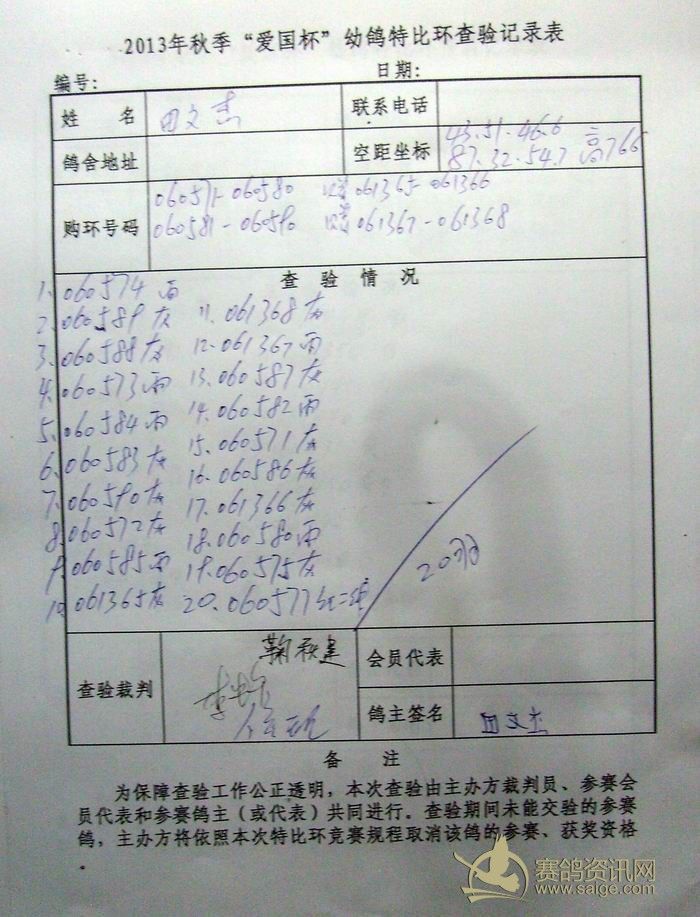 2013年秋季“爱国杯”幼鸽特比环查验记录表
编号: 日期:
姓 名 田文杰 联系电话
鸽舍地址 空距坐标 43.51.46.6
87.32.54.7 高766
购环号码 060571-060580 赠061365-061366
060581-060590 赠061367-061368
查 验 情 况
1.060574雨
2.060589灰
3.060588灰
4.060573雨
5.060584雨
6.060583灰
7.060590灰
8.060572灰
9.060585雨
10.061365灰
11.061368灰
12.061367雨
13.060587灰
14.060582雨
15.060571灰
16.060586灰
17.061366灰
18.060580雨
19.060575灰
20.060577
20羽
查验裁判 鞠秋建
会员代表
鸽主签名 田文杰
备 注
为保障查验工作公正透明，本次查验由主办方裁判员、参赛会
员代表和参赛鸽主（或代表）共同进行。查验期间未能交验的参赛
鸽，主办方将依照本次特比环竞赛规程取消该鸽的参赛、获奖资格
赛鸽资讯网
www.saige.com